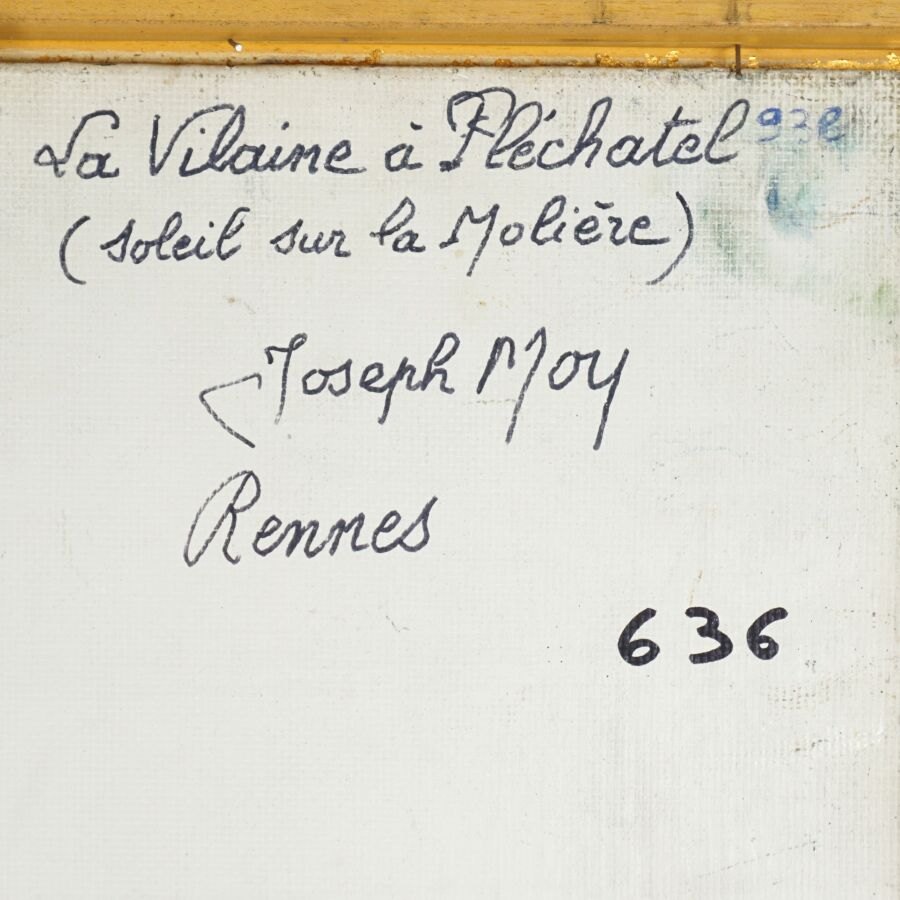 La Vilaine à Pléchatel
(soleil sur la Molière)
Joseph Moy
Rennes
636